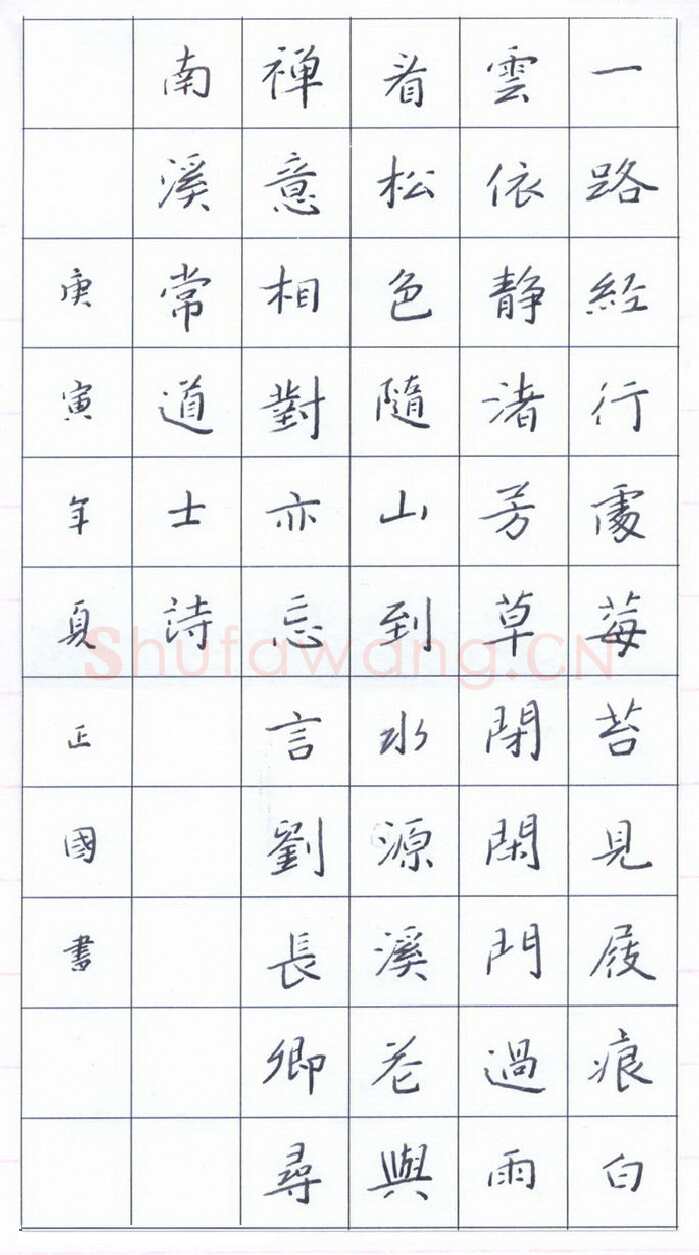 一路經行處莓苔見屐痕白
雲依靜渚芳草閉閑門過雨
看松色隨山到水源溪花與
禪意相對亦忘言劉長卿尋
南溪常道士詩
庚寅年夏正國書
Shufawang.CN